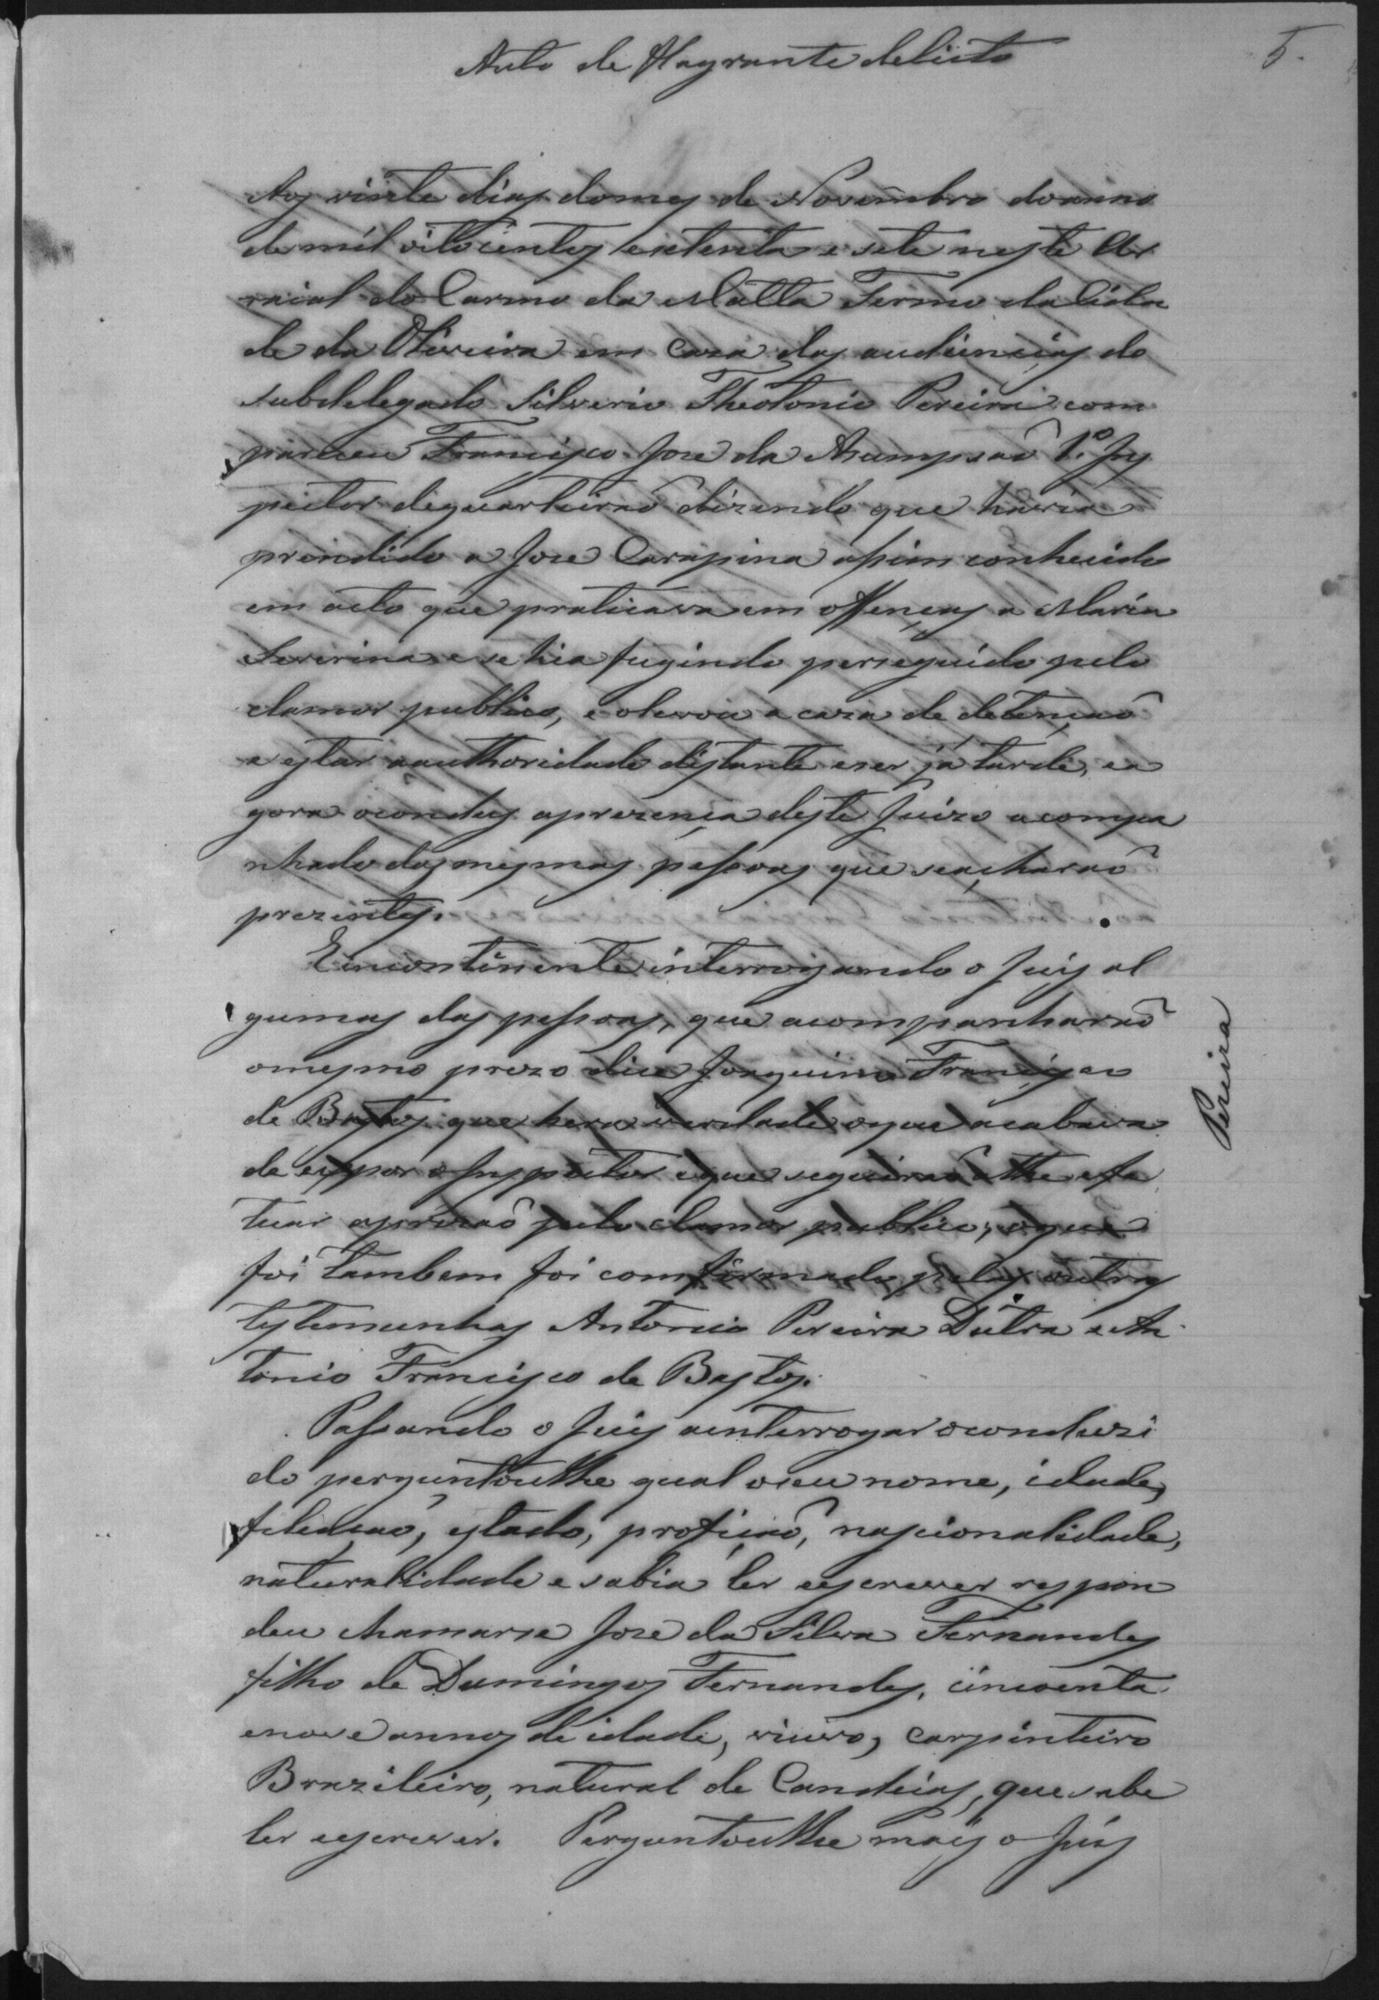 5.
Auto de Flagrante delicto
Aos vinte dias domes de Novembro doanno
de mil oitocentos esetenta e sete neste Ar
raial do Carmo da Matta Termo da Cida
de da Oliveira em Caza das audiencias do
subdelegado Silverio Theotonio Pereira com
pareceu Francisco Jose da Asumpsaõ 1º Ins
pector dequarteiraõ dizendo que havia
prendido a Jose Carapina assim conhecido
em acto que praticava em offenças a Maria
Severina e se hia fugindo perseguido pelo
clamor publico, e olevou a caza de detençaõ
e estar aauthoridade distante eser já tarde, ea
gora oconduz aprezença deste Juizo acompa
nhado das mesmas pessoas que seacharaõ
prezentes.
Eincontinente interrogando o Juis al
gumas das pessoas, que acompanharaõ
omesmo prezo dice Joaquim Francisco
de Bastos que hera verdade oque acabava
de expor o Inspector eque seguiraõ athe efe
tuar aprizaõ pelo clamor publico, oque
foi tambem foi comfirmado pelas outras
testemunhas Antonio Pereira Dutra e An
tonio Francisco de Bastos.
Passando o Juis ainterrogar oconduzi
do perguntoulhe qual oseu nome, idade,
feliaçaõ, estado, profiçaõ, nascionalidade,
naturalidade e sabia ler eescrever respon
deu chamarse Jose da Silva Fernandes
filho de Domingos Fernandes, cincoenta
enove annos de idade, viuvo, carpinteiro
Brazileiro, natural de Candeias, que sabe
ler eescrever. Perguntoulhe mais o Juis
Pereira